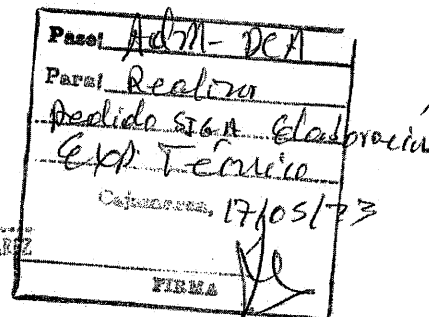 Pase: Adm - DCA
Para: Realizar
Pedido SIGA Elaboración
Exp Técnico
Cajamarca, 17/05/23
FIRMA